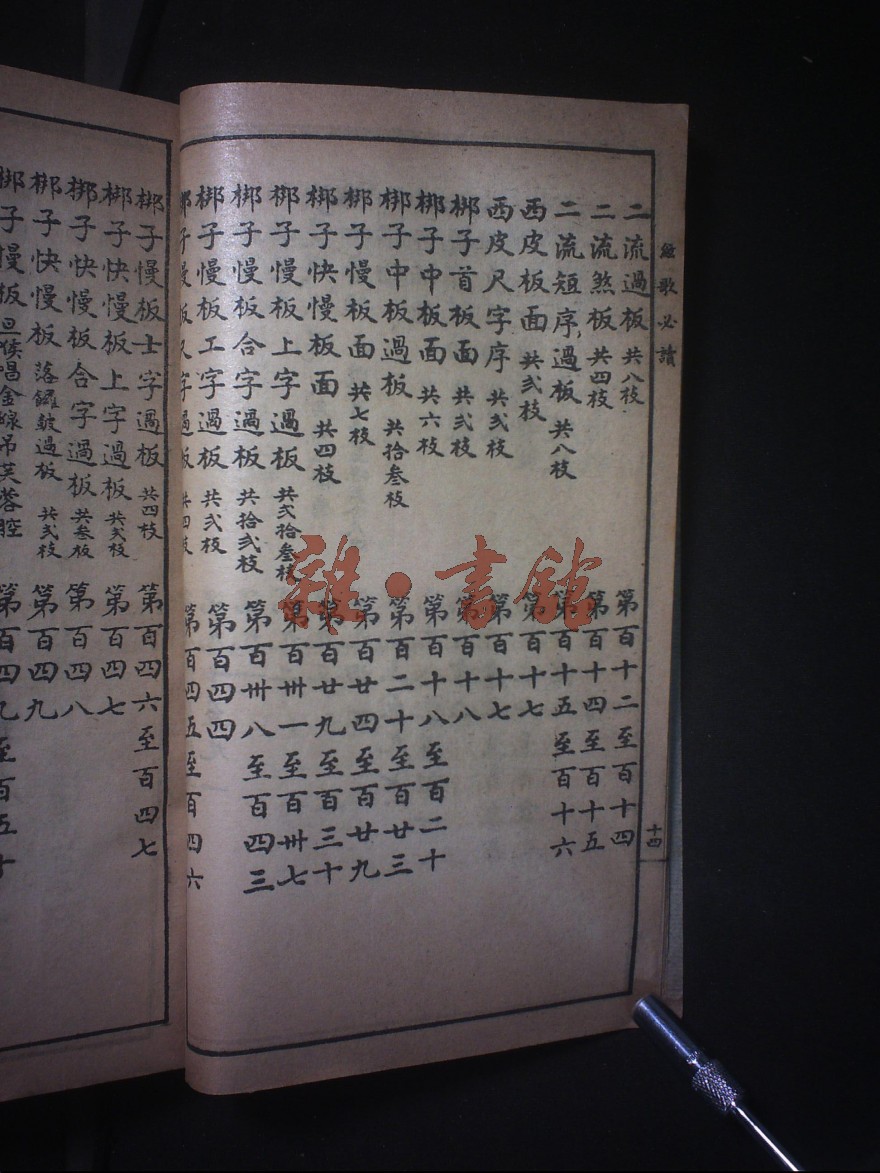 絃歌必讀
十四
二流過板 共八枝 第百十二至百十四
二流煞板 共四枝 第百十四至百十五
二流短序過板 共八枝 第百十五至百十六
西皮板面 共弍枝 第百十七
西皮尺字序 共弍枝 第百十七
梆子首板面 共弍枝 第百十八
梆子中板面 共六枝 第百十八至百二十
梆子中板過板 共拾叁枝 第百二十至百廿三
梆子慢板面 共七枝 第百廿四至百廿九
梆子快慢板面 共四枝 第百廿九至百三十
梆子慢板上字過板 共弍拾叁枝 第百卅一至百卅七
梆子慢板合字過板 共拾弍枝 第百卅八至百四三
梆子慢板工字過板 共弍枝 第百四四
梆子慢板尺字過板 共四枝 第百四五至百四六
梆子慢板士字過板 共四枝 第百四六至百四七
梆子快慢板上字過板 共弍枝 第百四七
梆子快慢板合字過板 共叁枝 第百四八
梆子快慢板 落鑼皷過板 共弍枝 第百四九
梆子慢板 旦喉唱金線吊芙蓉腔 第百四九至百五十
雜·書館